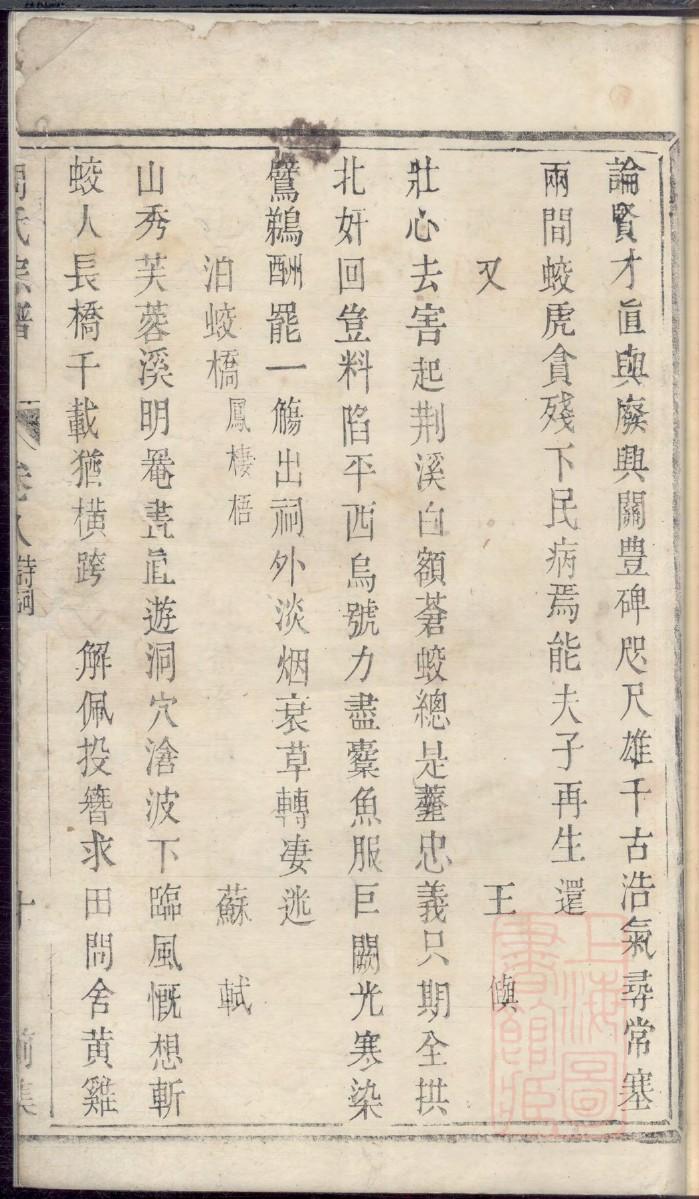 論賢才直與廢興關豊碑咫尺雄千古浩氣尋常塞
兩間蛟虎貪殘下民病焉能夫子再生還
又 王 㒜
壯心去害起荆溪白額蒼蛟總是虀忠義只期全拱
北奸回豈料陷平西烏號力盡櫜魚服巨闕光寒染
鷿鵜酬罷一觴出祠外淡烟衰草轉凄迷
泊蛟橋 鳳棲梧 蘇 軾
山秀芙蓉溪明罨畫眞遊洞穴滄波下臨風慨想斬
蛟人長橋千載猶横跨 解佩投簪求田問舍黄雞
周氏宗譜 卷八 詩詞 十 前集
上海圖書館藏